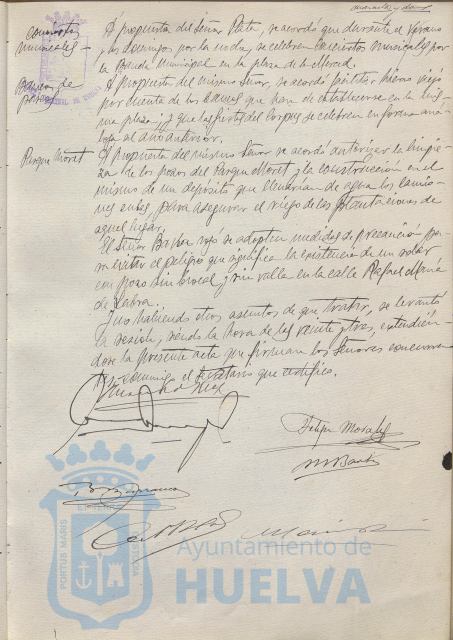 A propuesta del Señor Plata, se acordó que durante el Verano
y los domingos por la noche, se celebren conciertos musicales por
la Banda Municipal en la plaza de la Merced.
A propuesta del mismo Señor, se acordó
por cuenta de los que han de establecerse en la mis-
ma plaza; y que las fiestas del Corpus se celebren en forma aná-
loga al año anterior.
Parque Moret
A propuesta del mismo Señor se acordó autorizar la limpie-
za de los pozos del Parque Moret y la construcción en el
mismo de un depósito que llenarían de agua los camio-
nes cubas, para asegurar el riego de las plantaciones de
aquel lugar.
El Señor rogó se adopten medidas de precaución pa-
ra evitar el peligro que significa la existencia de un solar
con pozo sin brocal y sin valla en la calle Rafael María
de Labra.
Y no habiendo otros asuntos de que tratar, se levantó
la sesión, siendo la hora de las veinte y tres, extendién-
dose la presente acta que firman los Señores concurren-
tes conmigo el Secretario que certifico.
Felipe Morales
PORTUS MARIS
Ayuntamiento de
HUELVA